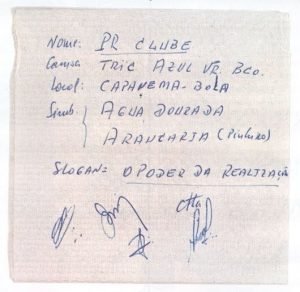 Nome: PR CLUBE
Camisa TRIC AZUL VR. BCO.
Local: CAPANEMA-BOLA
Simb { AGUA DOURADA
ARAUCARIA (Pinheiro)
SLOGAN = O PODER DA REALIZAÇÃO